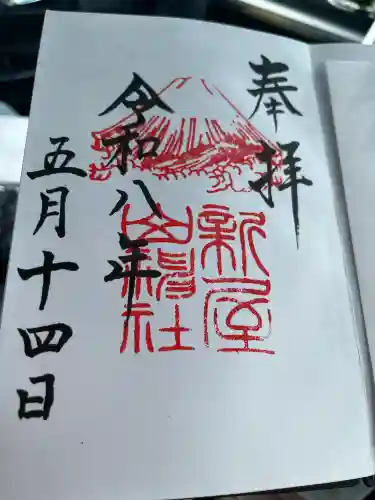 奉拝
新屋
山神社
令和八年
五月十四日